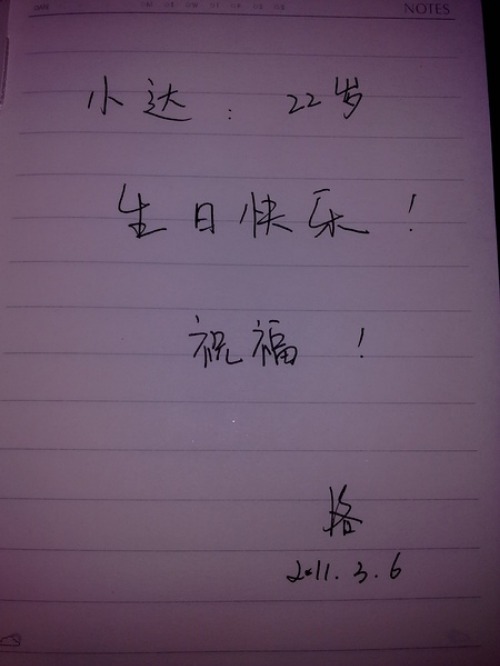 NOTES
小达：22岁
生日快乐！
祝福！
2011.3.6